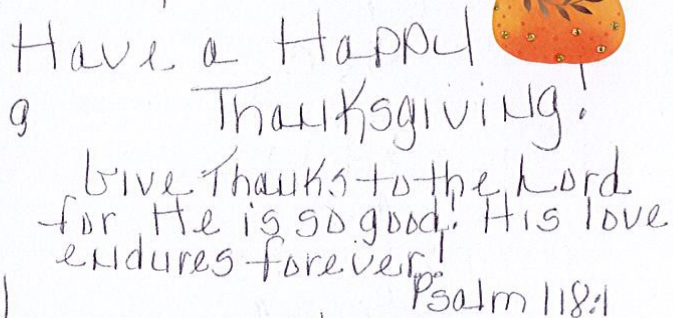 Have a Happy
g Thanksgiving!
Give Thanks to the Lord
for He is so good! His love
endures forever!
Psalm 118:1